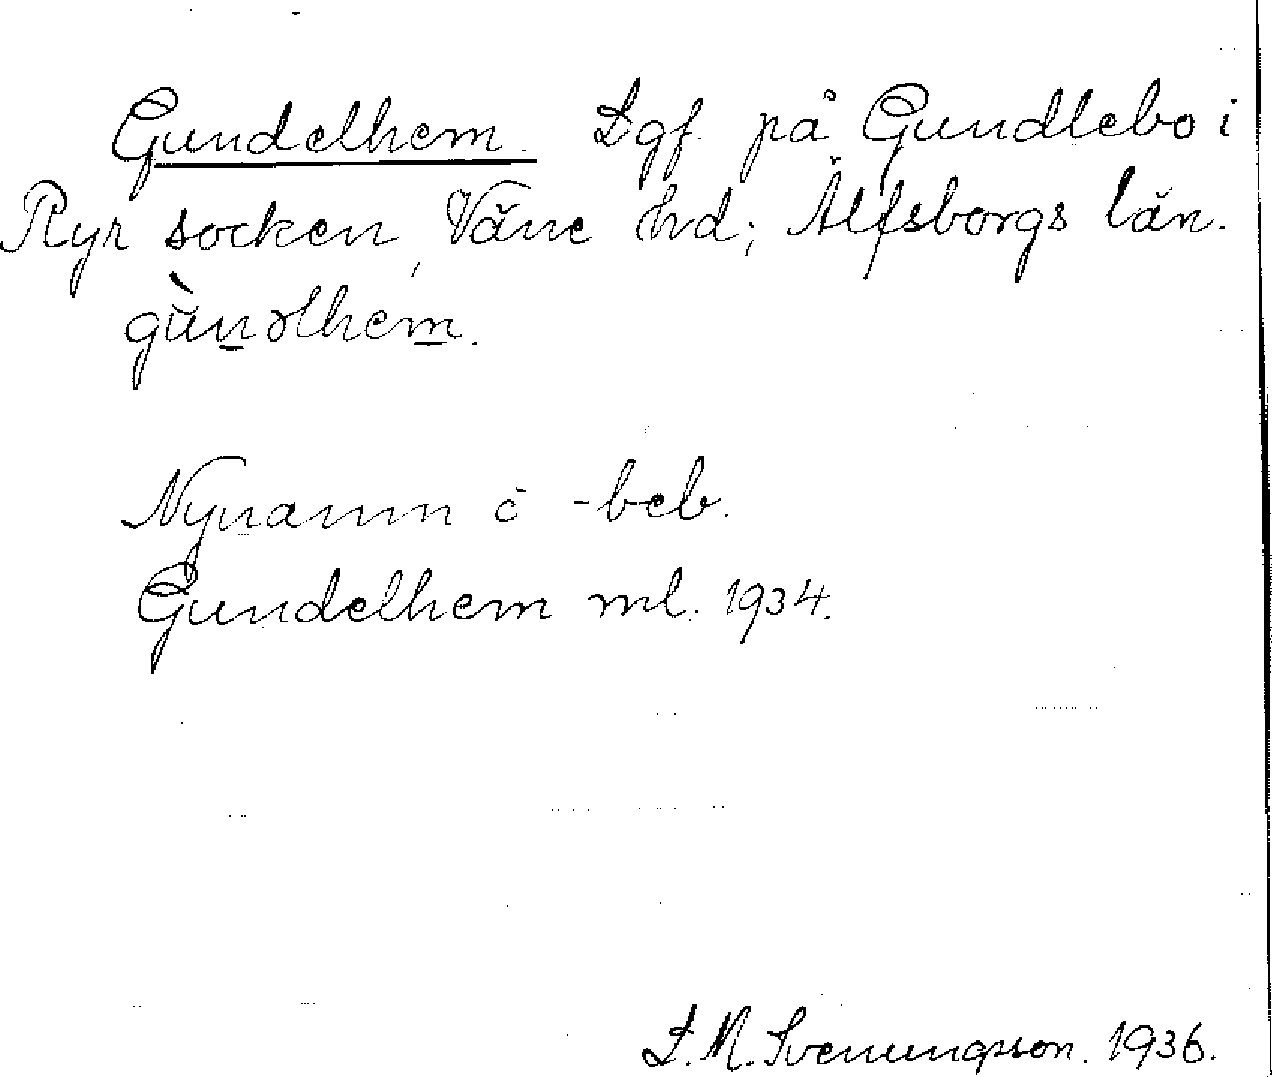 Gundelhem. Lgf. på Gundlebo i
Ryr socken, Väne hd; Älfsborgs län.
gùnəlhem.
Nynamn o -beb.
Gundelhem ml. 1934.
L. M. Svenungsson. 1936.